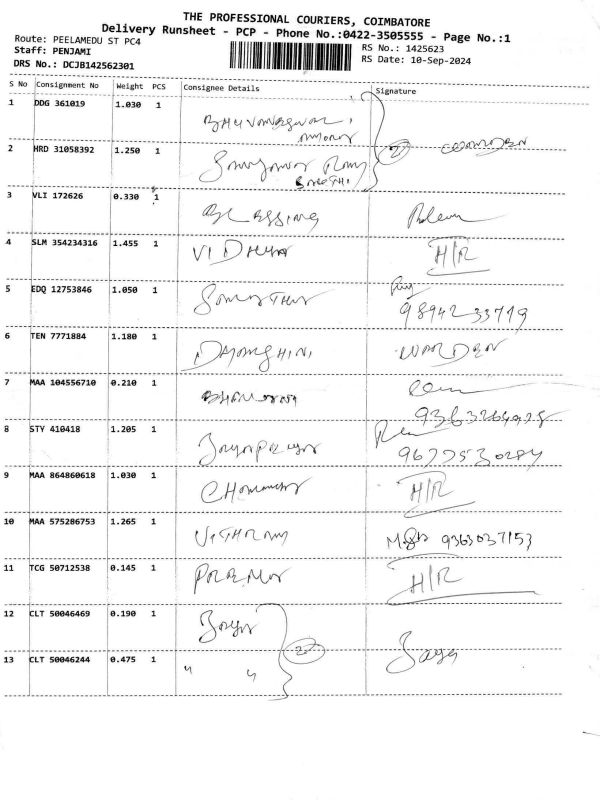 THE PROFESSIONAL COURIERS, COIMBATORE
Delivery Runsheet - PCP - Phone No.:0422-3505555 - Page No.:1
Route: PEELAMEDU ST PC4
RS No.: 1425623
Staff: PENJAMI
RS Date: 10-Sep-2024
DRS No.: DCJB142562301
S No Consignment No Weight PCS Consignee Details Signature
1 DDG 361019 1.030 1
2 HRD 31058392 1.250 1 2 WARDEN
3 VLI 172626 0.330 1 BLESSING
4 SLM 354234316 1.455 1 VIDHYA H/R
5 EDQ 12753846 1.050 1 9894233719
6 TEN 7771884 1.180 1 WARDEN
7 MAA 104556710 0.210 1
8 STY 410418 1.205 1
9 MAA 864860618 1.030 1 H/R
10 MAA 575286753 1.265 1 9363037153
11 TCG 50712538 0.145 1 PREMA H/R
12 CLT 50046469 0.190 1 Jaya 2
13 CLT 50046244 0.475 1 " " Jaya